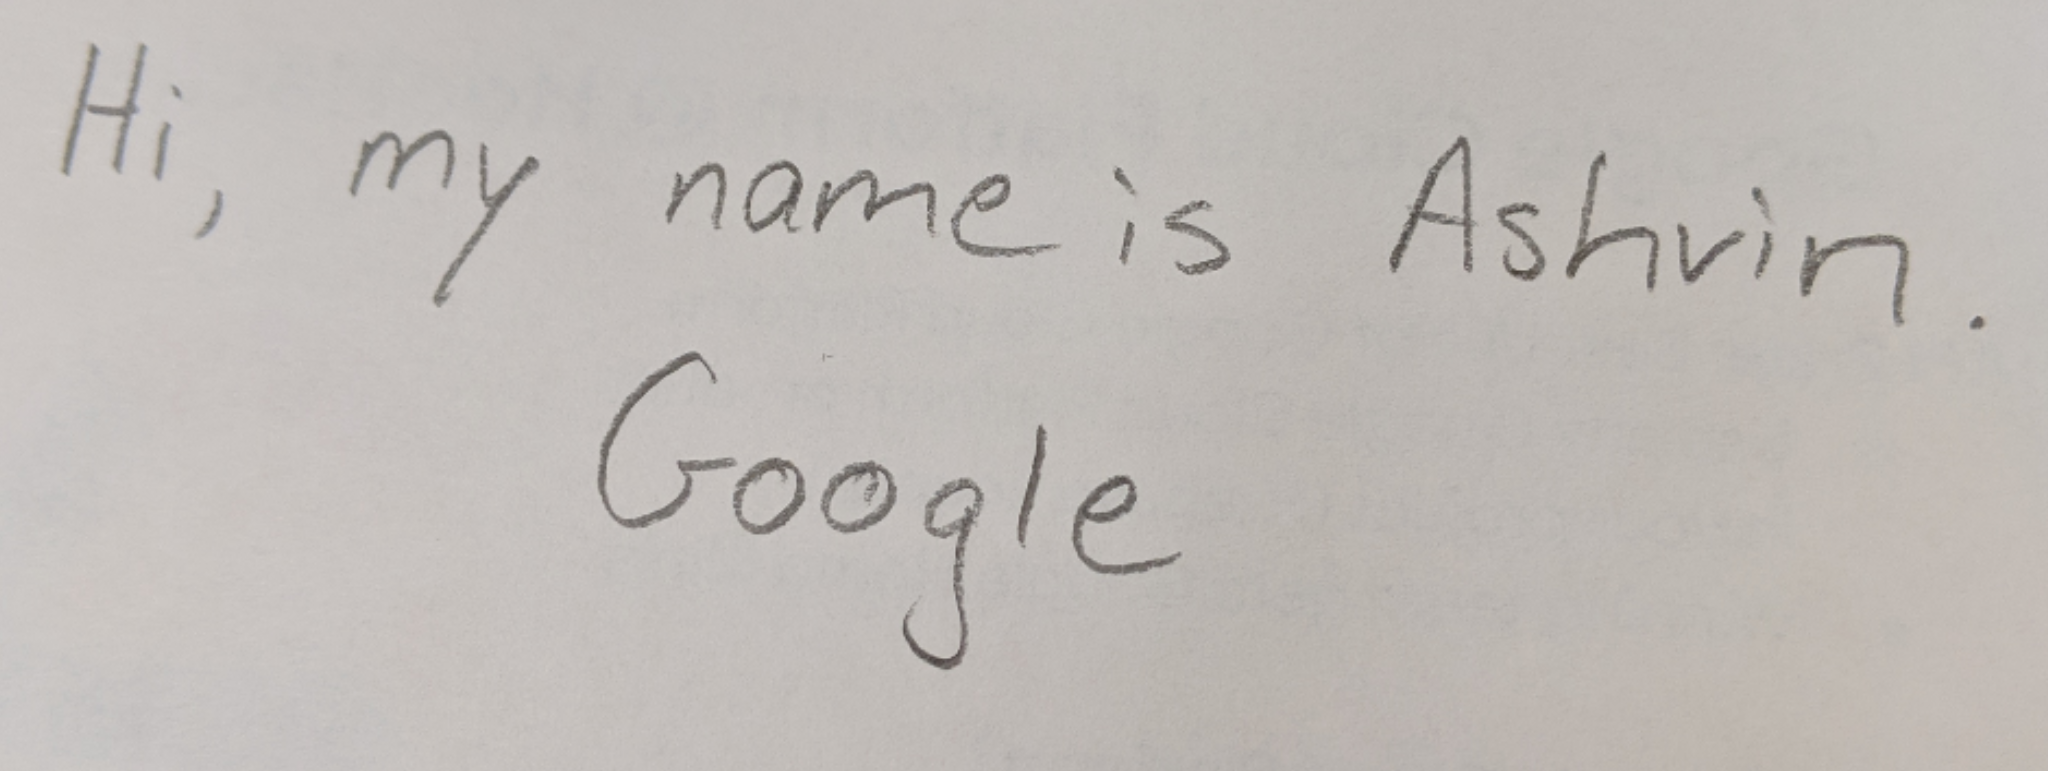 Hi, my name is Ashvin.
Google